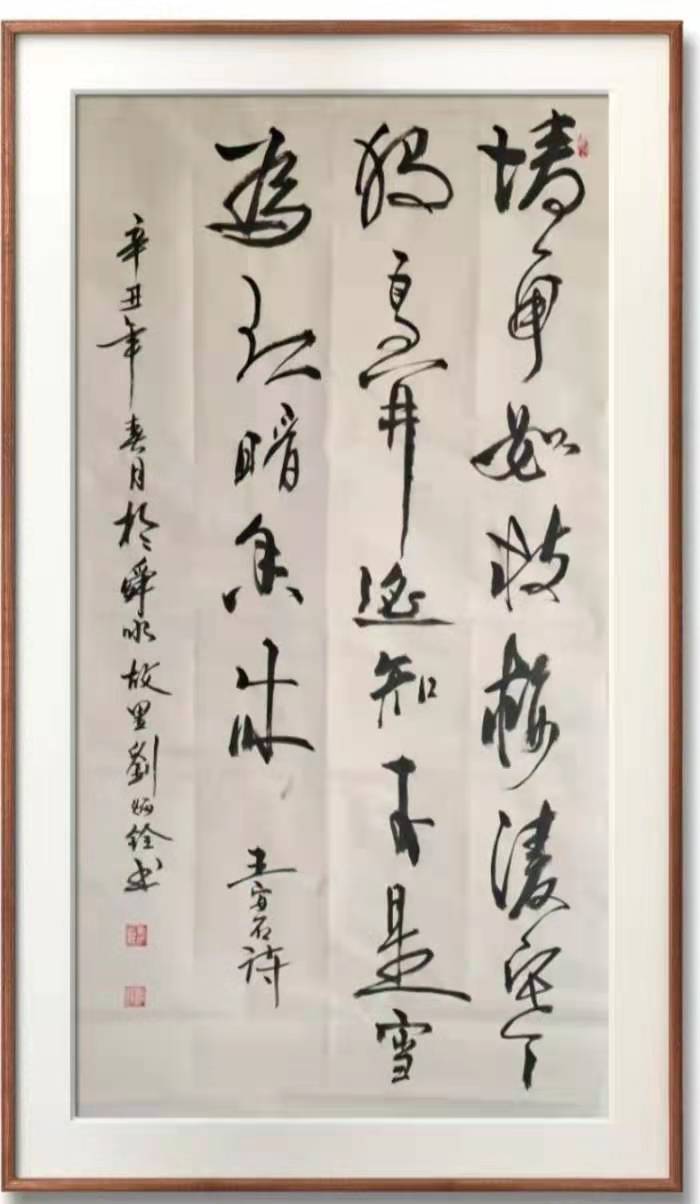 墙角数枝梅凌寒
独自開遥知不是雪
為有暗香来 王安石詩
辛丑年春月於舜水故里劉炳銓书